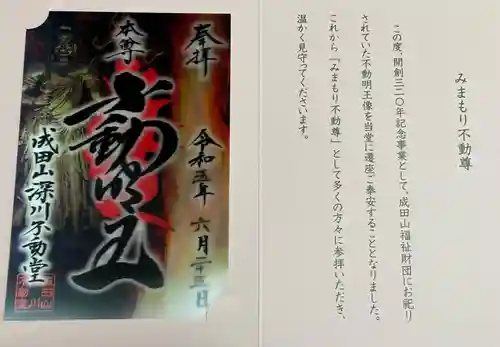 みまもり不動尊
この度、開創三二〇年記念事業として、成田山福祉財団にお祀り
されていた不動明王像を当堂に遷座ご奉安することとなりました。
これから「みまもり不動尊」として多くの方々に参拝いただき、
温かく見守ってくださいます。
奉拝
令和五年 六月二十三日
本尊
不動明王
成田山深川不動堂